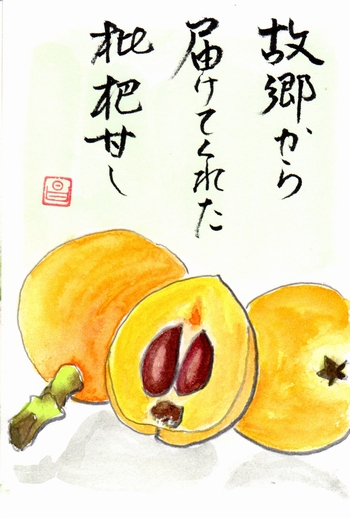 故郷から
届けてくれた
枇杷甘し